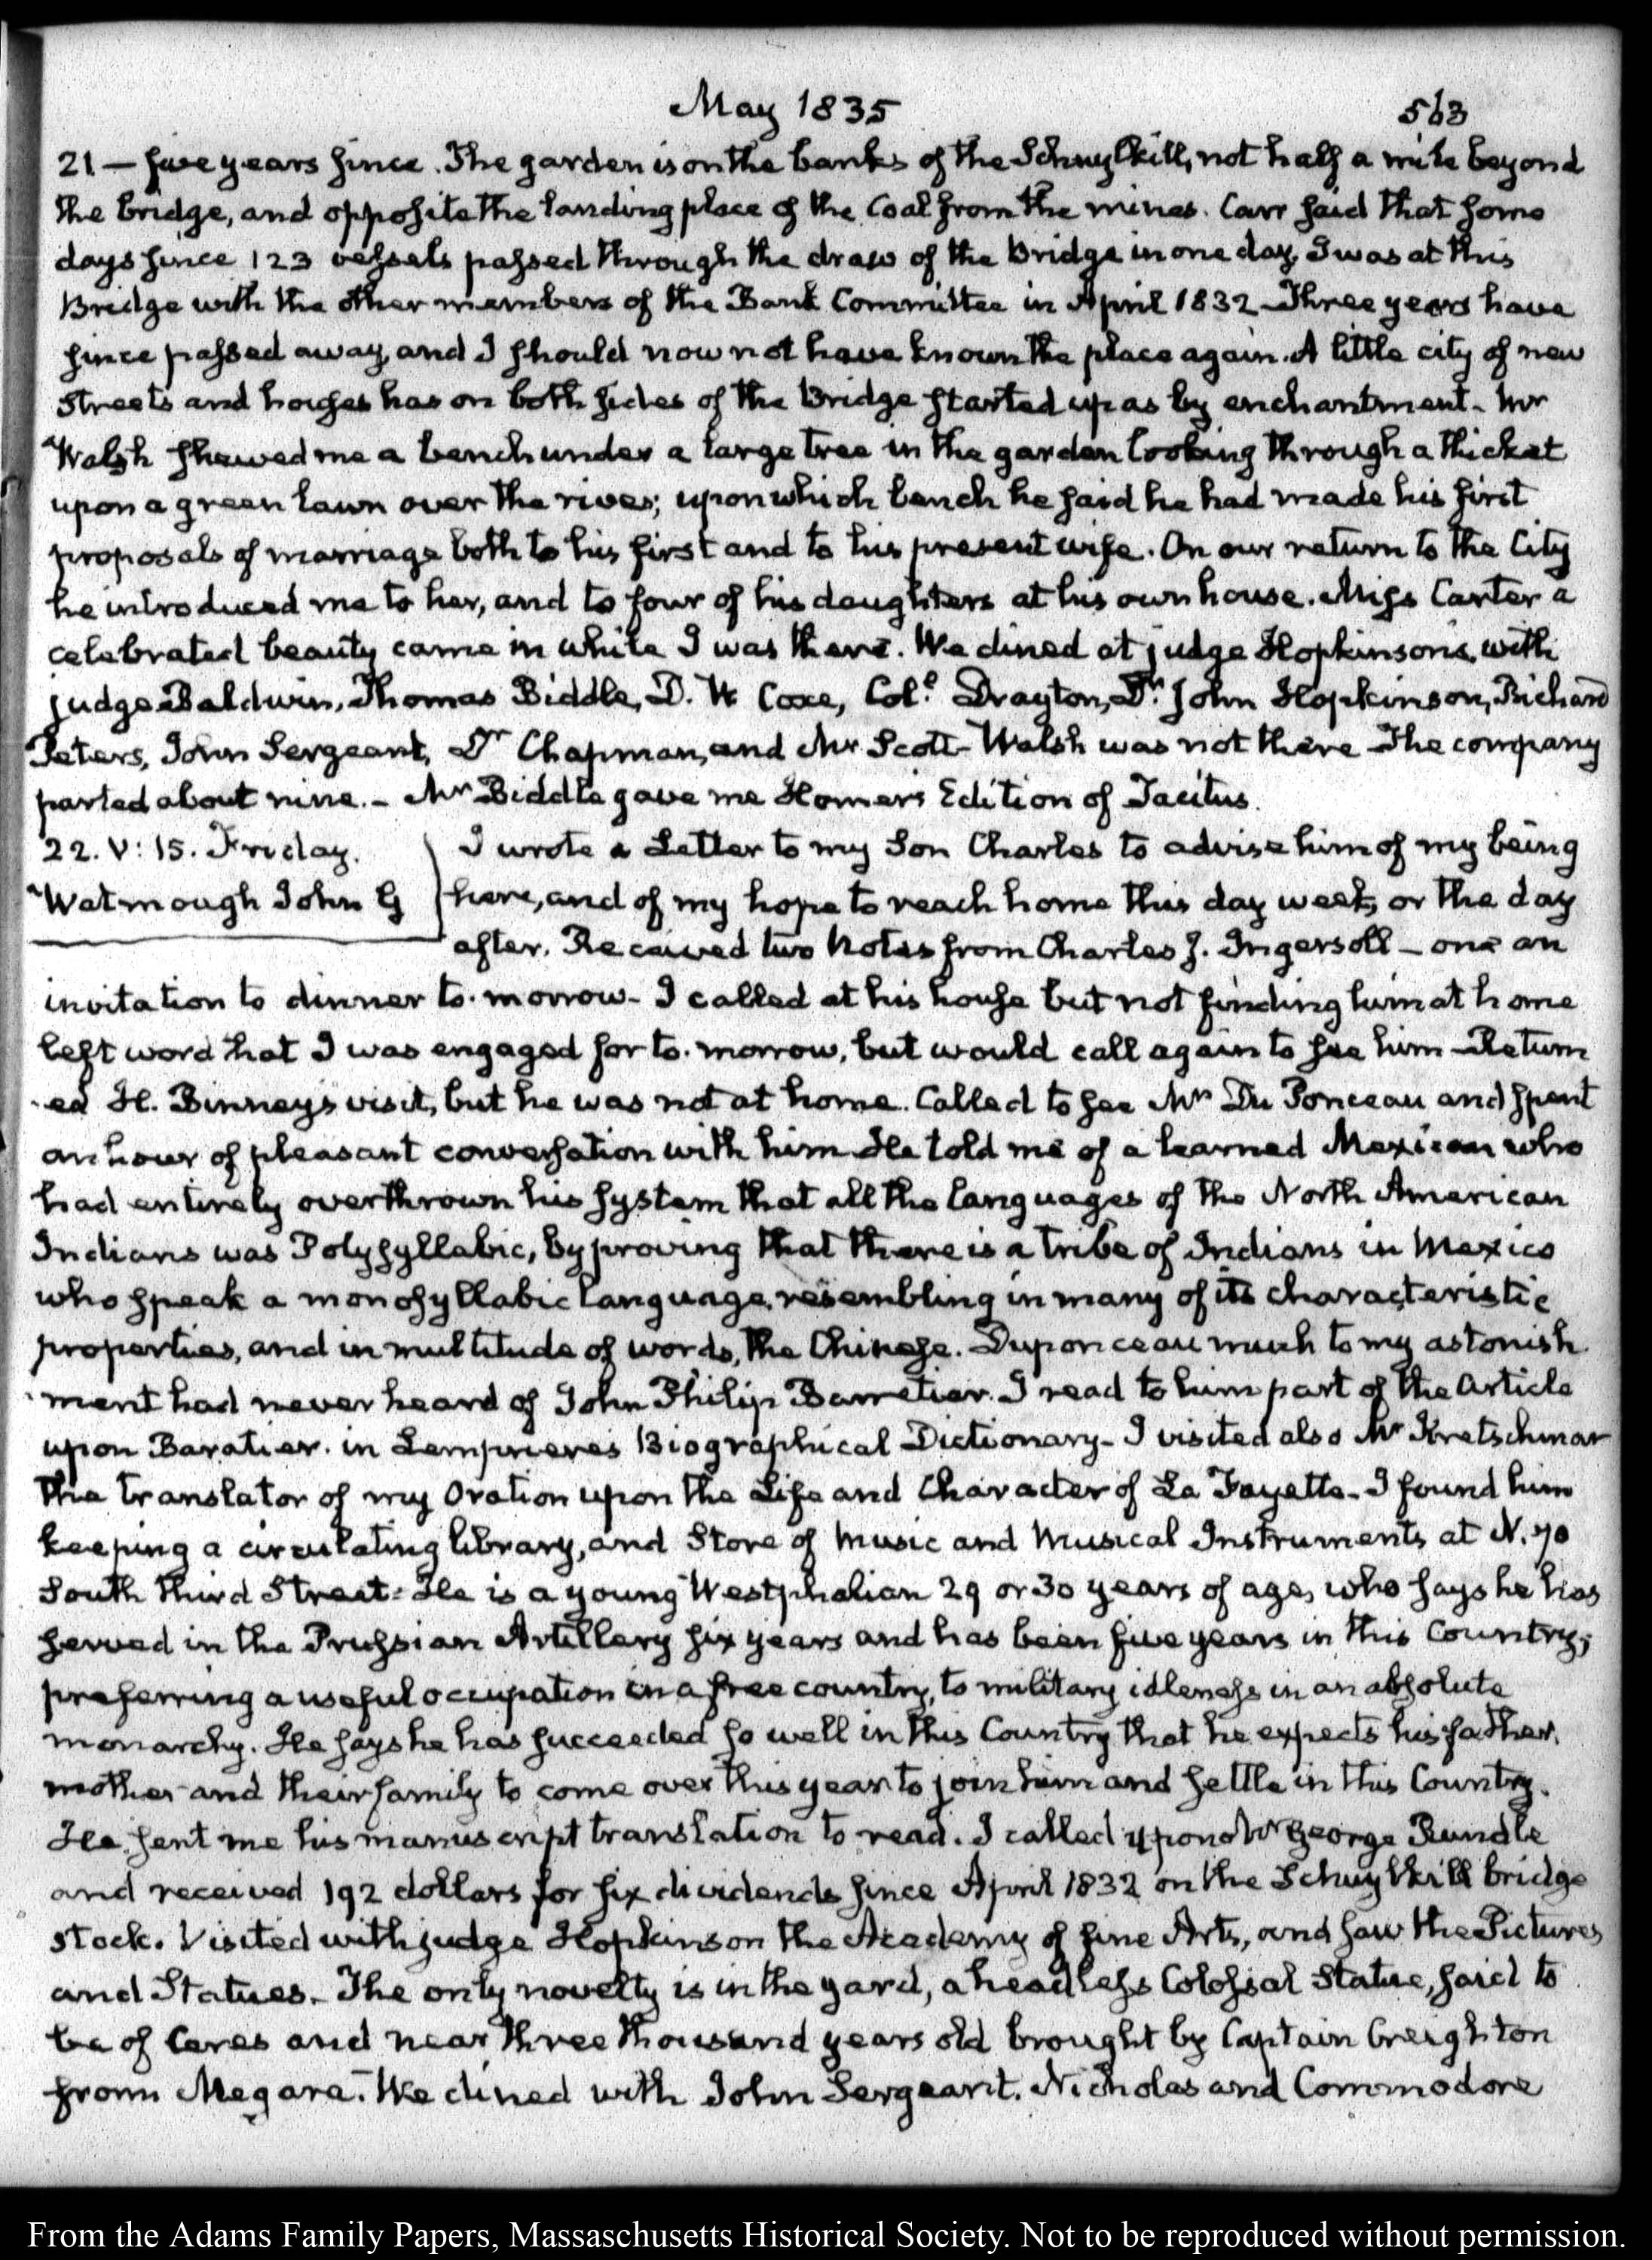 May 1835
563
21 — five years since. The garden is on the banks of the Schuylkill, not half a mile beyond
the bridge, and opposite the landing place of the Coal from the mines. Carr said that some
days since 123 vessels passed through the draw of the Bridge in one day. I was at this
Bridge with the other members of the Bank Committee in April 1832 – Three years have
since passed away, and I should now not have known the place again. A little city of new
streets and houses has on both sides of the Bridge started up as by enchantment – Mr
Walsh shewed me a bench under a large tree in the garden looking through a thicket
upon a green lawn over the river; upon which bench he said he had made his first
proposals of marriage both to his first and to his present wife. On our return to the City
he introduced me to her, and to four of his daughters at his own house. Miss Carter a
celebrated beauty came in while I was there. We dined at judge Hopkinson's, with
judge Baldwin, Thomas Biddle, D. W Coxe, Col.l Drayton, Dr John Hopkinson, Richard
Peters, John Sergeant, Dr Chapman, and Mr Scott – Walsh was not there – The company
parted about nine. – Mr Biddle gave me Homer's Edition of Tacitus.
22. V: 15. Friday.
Watmough John G
I wrote a Letter to my Son Charles to advise him of my being
here, and of my hope to reach home this day week, or the day
after. Received two Notes from Charles J. Ingersoll – one an
invitation to dinner to-morrow – I called at his house but not finding him at home
left word that I was engaged for to-morrow, but would call again to see him – Return
-ed H. Binney's visit, but he was not at home. Called to see Mr Du Ponceau and spent
an hour of pleasant conversation with him – He told me of a learned Mexican who
had entirely overthrown his system that all the languages of the North American
Indians was Polysyllabic, by proving that there is a tribe of Indians in Mexico
who speak a monosyllabic language, resembling in many of its characteristic
properties, and in multitude of words, the Chinese. Duponceau much to my astonish
-ment had never heard of John Philip Barretier. I read to him part of the article
upon Baratier. in Lempriere's Biographical Dictionary – I visited also Mr Kretschmar
the translator of my Oration upon the Life and Character of La Fayette – I found him
keeping a circulating library, and Store of Music and Musical Instruments at N. 70
South Third Street – He is a young Westphalian 29 or 30 years of age, who says he has
served in the Prussian Artillery six years and has been five years in this Country;
preferring a useful occupation in a free country, to military idleness in an absolute
monarchy. He says he has succeeded so well in this Country that he expects his father,
mother and their family to come over this year to join him and settle in this Country.
He sent me his manuscript translation to read. I called upon Mr George Rundle
and received 192 dollars for six dividends since April 1832 on the Schuylkill bridge
stock. Visited with judge Hopkinson the Academy of fine Arts, and saw the Pictures
and Statues – The only novelty is in the yard, a headless Colossal Statue, said to
be of Ceres and near three thousand years old brought by Captain Creighton
from Megara. We dined with John Sergeant. Nicholas and Commodore
From the Adams Family Papers, Massaschusetts Historical Society. Not to be reproduced without permission.